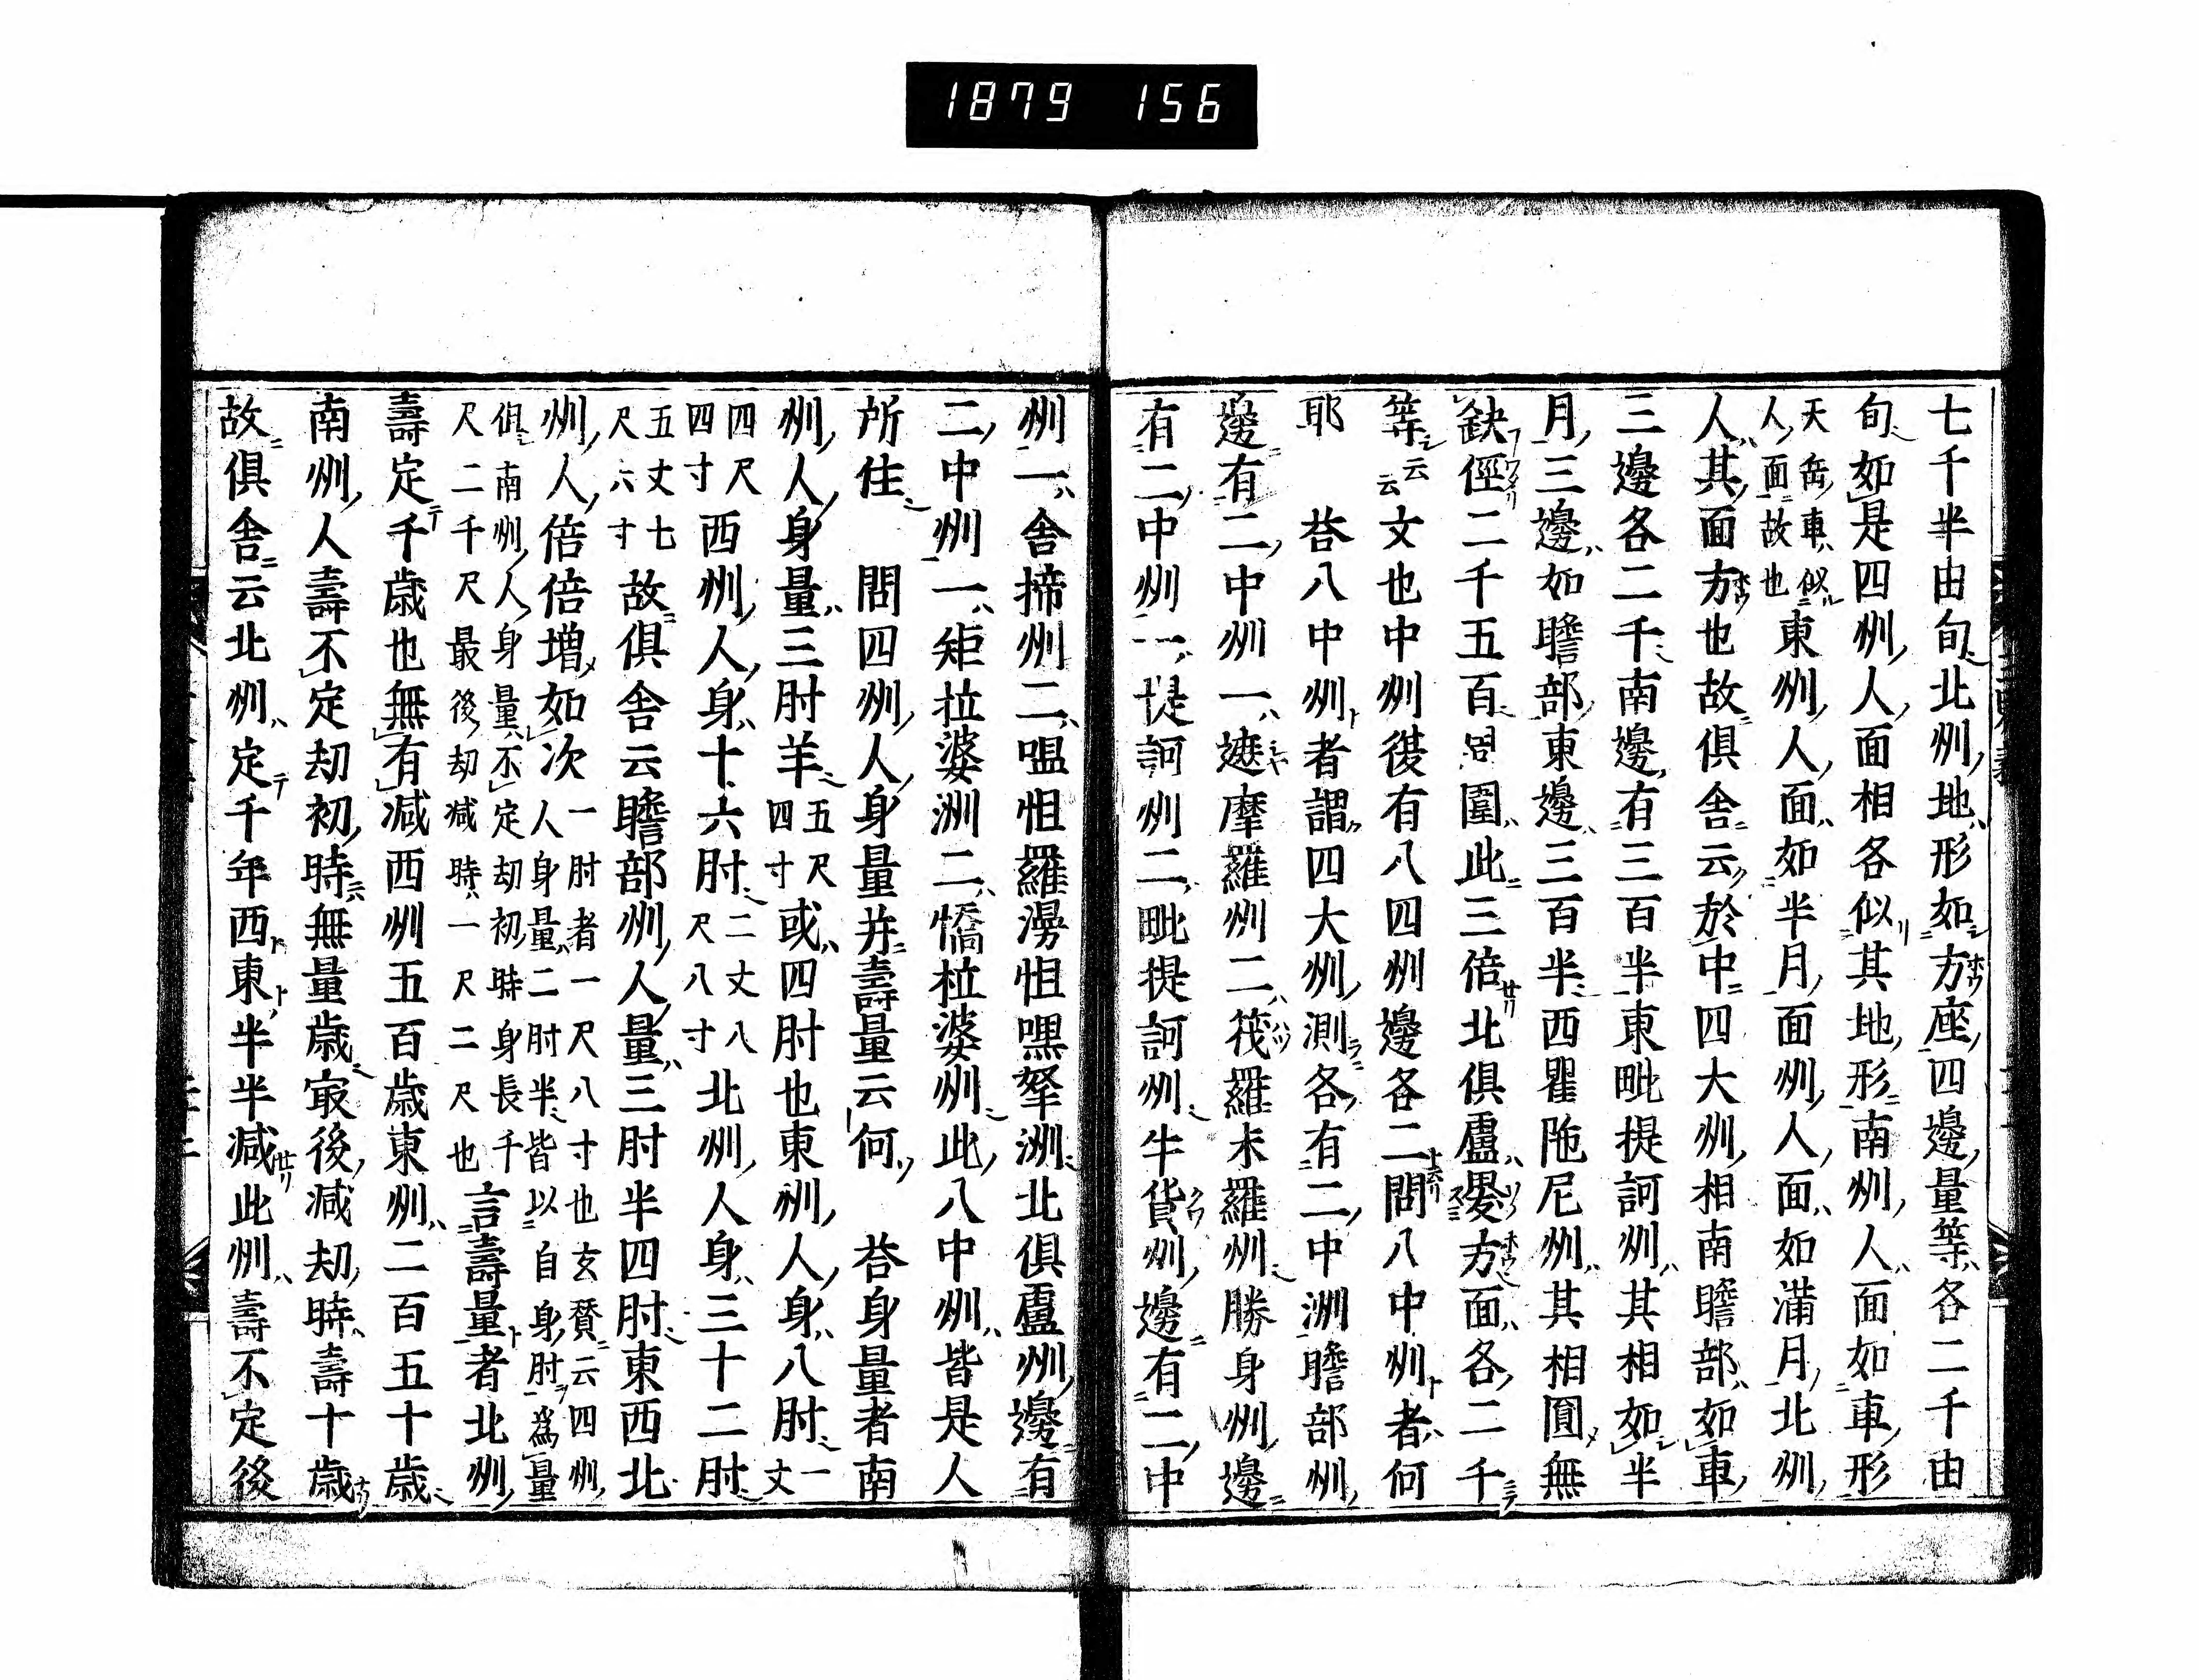 1879 156
七千半由旬北州地形如方座四邊量等各二千由
旬如是四州人面相各似其地形南州人面如車形
天缶車似人面故也東州人面如半月面州人面如滿月北州
人其面方也故俱舍云於中四大州相南瞻部如車
三邊各二千南邊有三百半東毗提訶州其相如半
月三邊如瞻部東邊三百半西瞿陁尼州其相圓無
缺徑二千五百周圍此三倍北俱盧畟方面各二千
等云云文也中州復有八四州邊各二問八中州者何
耶 荅八中州者謂四大州測各有二中洲瞻部州
邊有二中州一遮摩羅州二筏羅末羅州勝身州邊
有二中州一提訶州二毗提訶州牛貨州邊有二中
州一舍搋州二嗢怛羅漫怛嘿拏洲北俱盧州邊有
二中州一矩拉婆洲二憍拉婆州此八中州皆是人
所住 問四州人身量并壽量云何 荅身量者南
州人身量三肘羊五尺四寸或四肘也東州人身八肘一丈
四尺四寸西州人身十六肘二丈八尺八寸北州人身三十二肘
五丈七尺六寸故俱舍云瞻部州人量三肘半四肘東西北
州人倍倍增如次一肘者一尺八寸也玄賛云四州人身量二肘半皆以自身肘爲量
俱南州人身量不定劫初時身長千尺二千尺最後劫減時一尺二尺也言壽量者北州
壽定千歲也無有減西州五百歲東州二百五十歲
南州人壽不定劫初時無量歲㝡後減劫時壽十歲
故俱舍云北州定千年西東半半減此州壽不定後